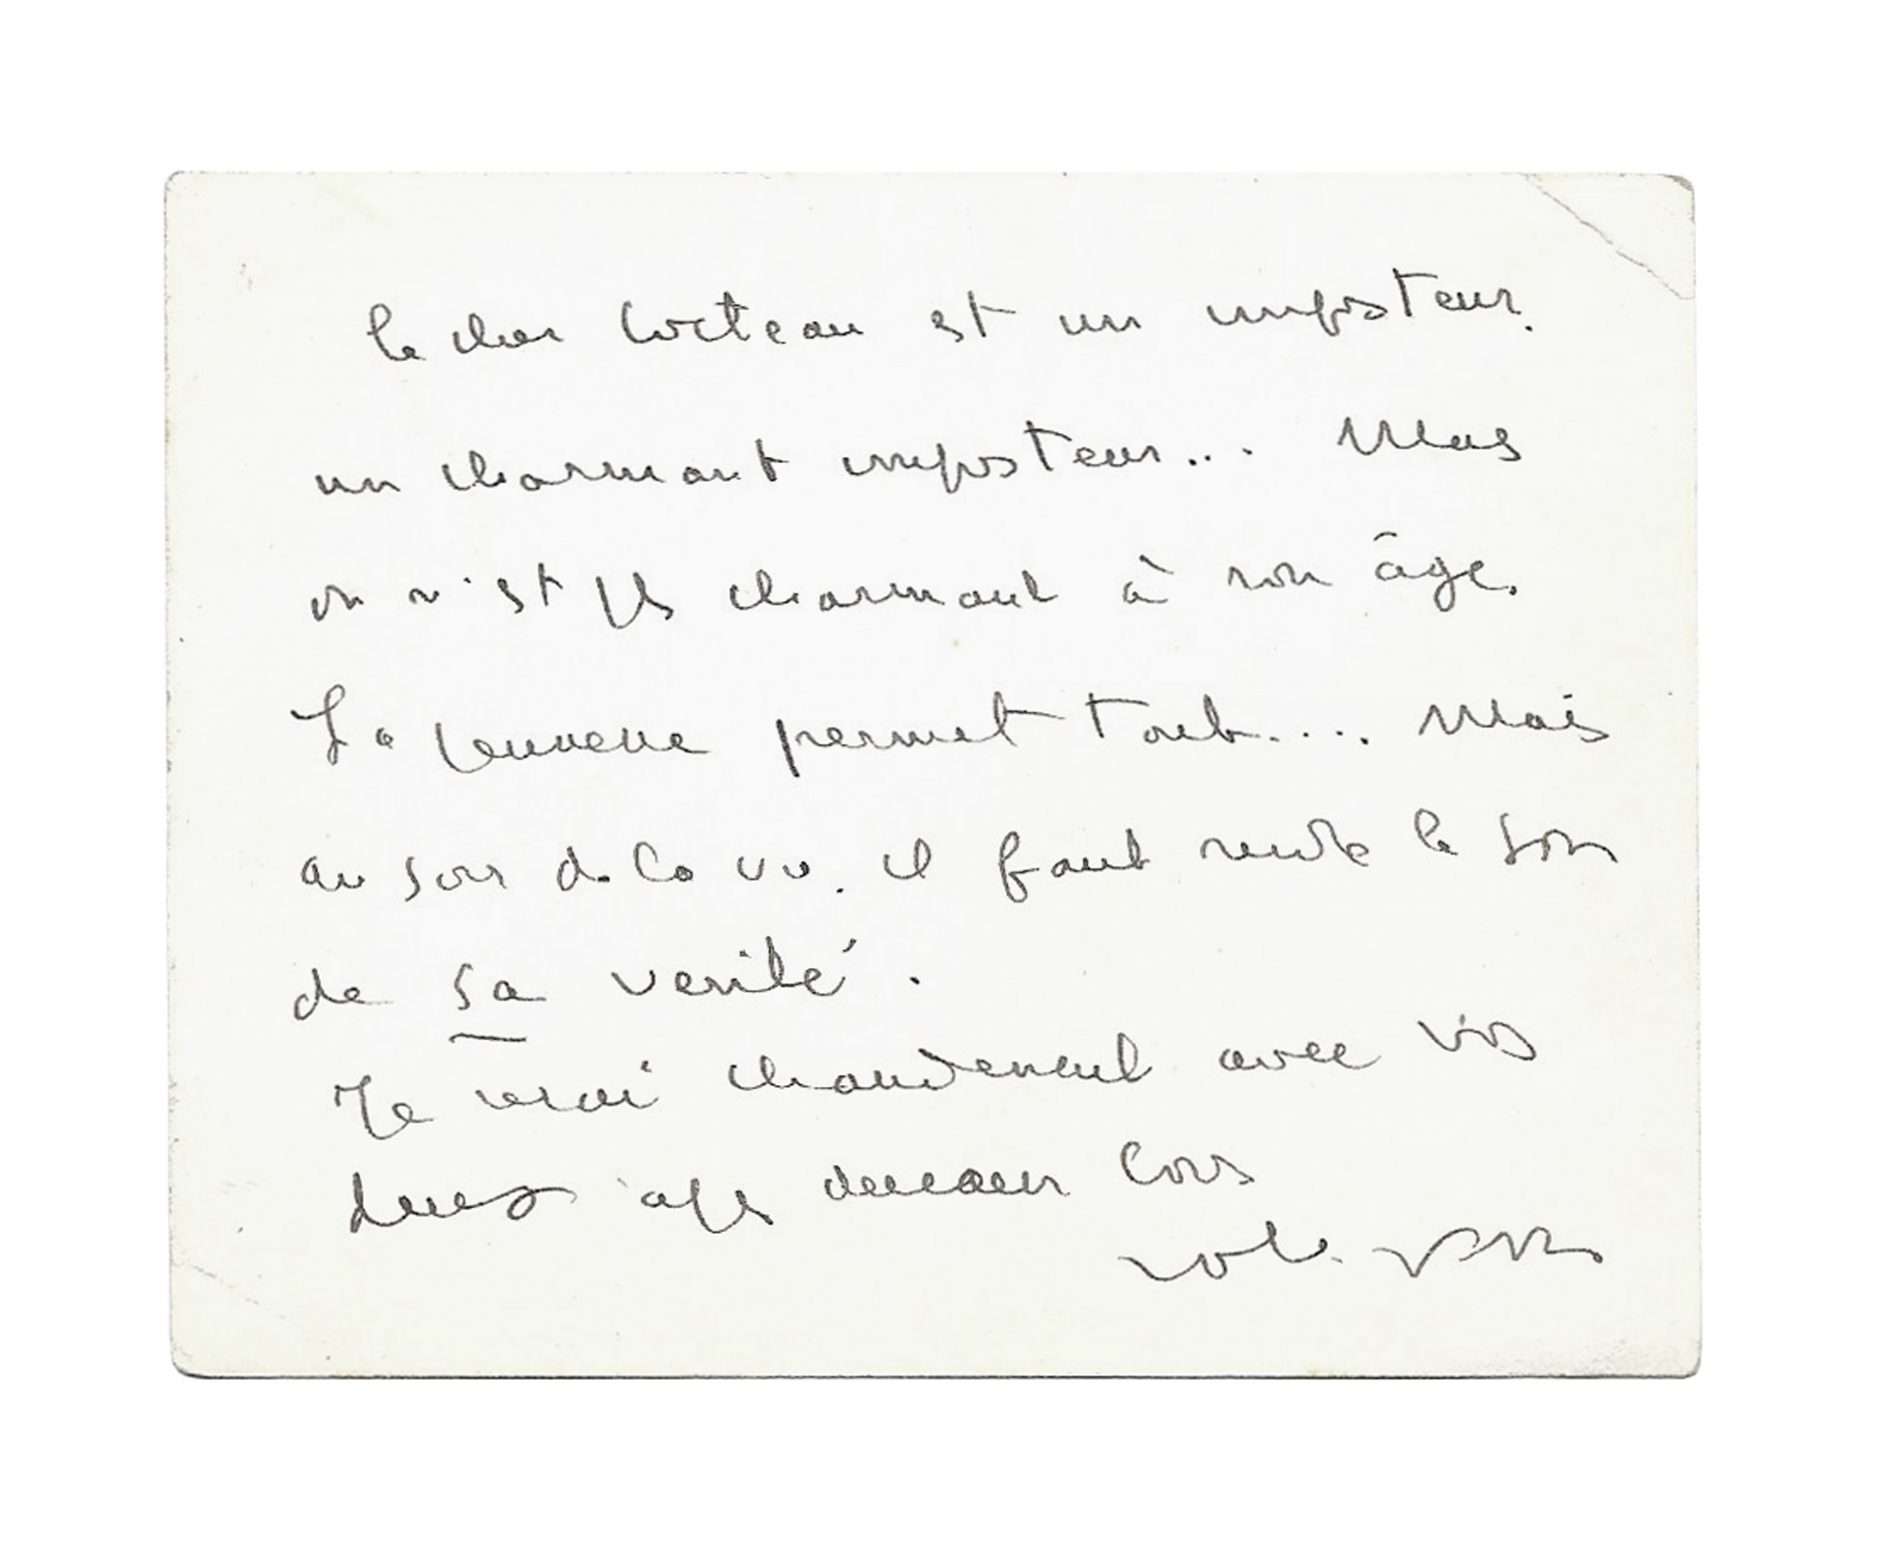 le cher Cocteau est un imposteur.
un charmant imposteur... Mais
on n'est plus charmant à son âge.
La jeunesse permet tout.... Mais
au soir de la vie. il faut rendre le son
de sa verité.
Je serai chaudement avec vos